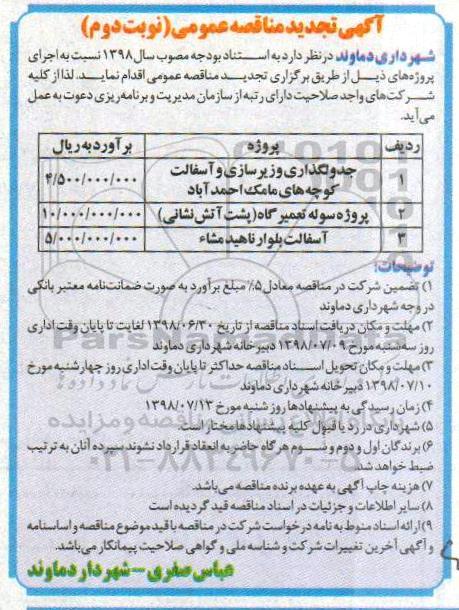 آگهی تجدید مناقصه عمومی (نوبت دوم)
شهرداری دماوند در نظر دارد به استناد بودجه مصوب سال ۱۳۹۸ نسبت به اجرای
پروژه‌های ذیل از طریق برگزاری تجدید مناقصه عمومی اقدام نماید. لذا از کلیه
شرکت‌های واجد صلاحیت دارای رتبه از سازمان مدیریت و برنامه‌ریزی دعوت به عمل
می‌آید.
ردیف پروژه برآورد به ریال
۱ جدولگذاری و زیرسازی و آسفالت کوچه‌های مامک احمدآباد ۴/۵۰۰/۰۰۰/۰۰۰
۲ پروژه سوله تعمیرگاه (پشت آتش نشانی) ۱۰/۰۰۰/۰۰۰/۰۰۰
۳ آسفالت بلوار ناهید مشاء ۵/۰۰۰/۰۰۰/۰۰۰
توضیحات:
۱) تضمین شرکت در مناقصه معادل ۵٪ مبلغ برآورد به صورت ضمانت‌نامه معتبر بانکی
در وجه شهرداری دماوند
۲) مهلت و مکان دریافت اسناد مناقصه از تاریخ ۱۳۹۸/۰۶/۳۰ لغایت تا پایان وقت اداری
روز سه‌شنبه مورخ ۱۳۹۸/۰۷/۰۹ دبیرخانه شهرداری دماوند
۳) مهلت و مکان تحویل اسناد مناقصه حداکثر تا پایان وقت اداری روز چهارشنبه مورخ
۱۳۹۸/۰۷/۱۰ دبیرخانه شهرداری دماوند
۴) زمان رسیدگی به پیشنهادها روز شنبه مورخ ۱۳۹۸/۰۷/۱۳
۵) شهرداری در رد یا قبول کلیه پیشنهادها مختار است
۶) برندگان اول و دوم و سوم هرگاه حاضر به انعقاد قرارداد نشوند سپرده آنان به ترتیب
ضبط خواهد شد.
۷) هزینه چاپ آگهی به عهده برنده مناقصه می‌باشد.
۸) سایر اطلاعات و جزئیات در اسناد مناقصه قید گردیده است
۹) ارائه اسناد منوط به نامه درخواست شرکت در مناقصه با قید موضوع مناقصه و اساسنامه
و آگهی آخرین تغییرات شرکت و شناسه ملی و گواهی صلاحیت پیمانکار می‌باشد.
عباس صفری - شهردار دماوند
۰۲۱-۸۸۳۴۹۶۷۰-۵